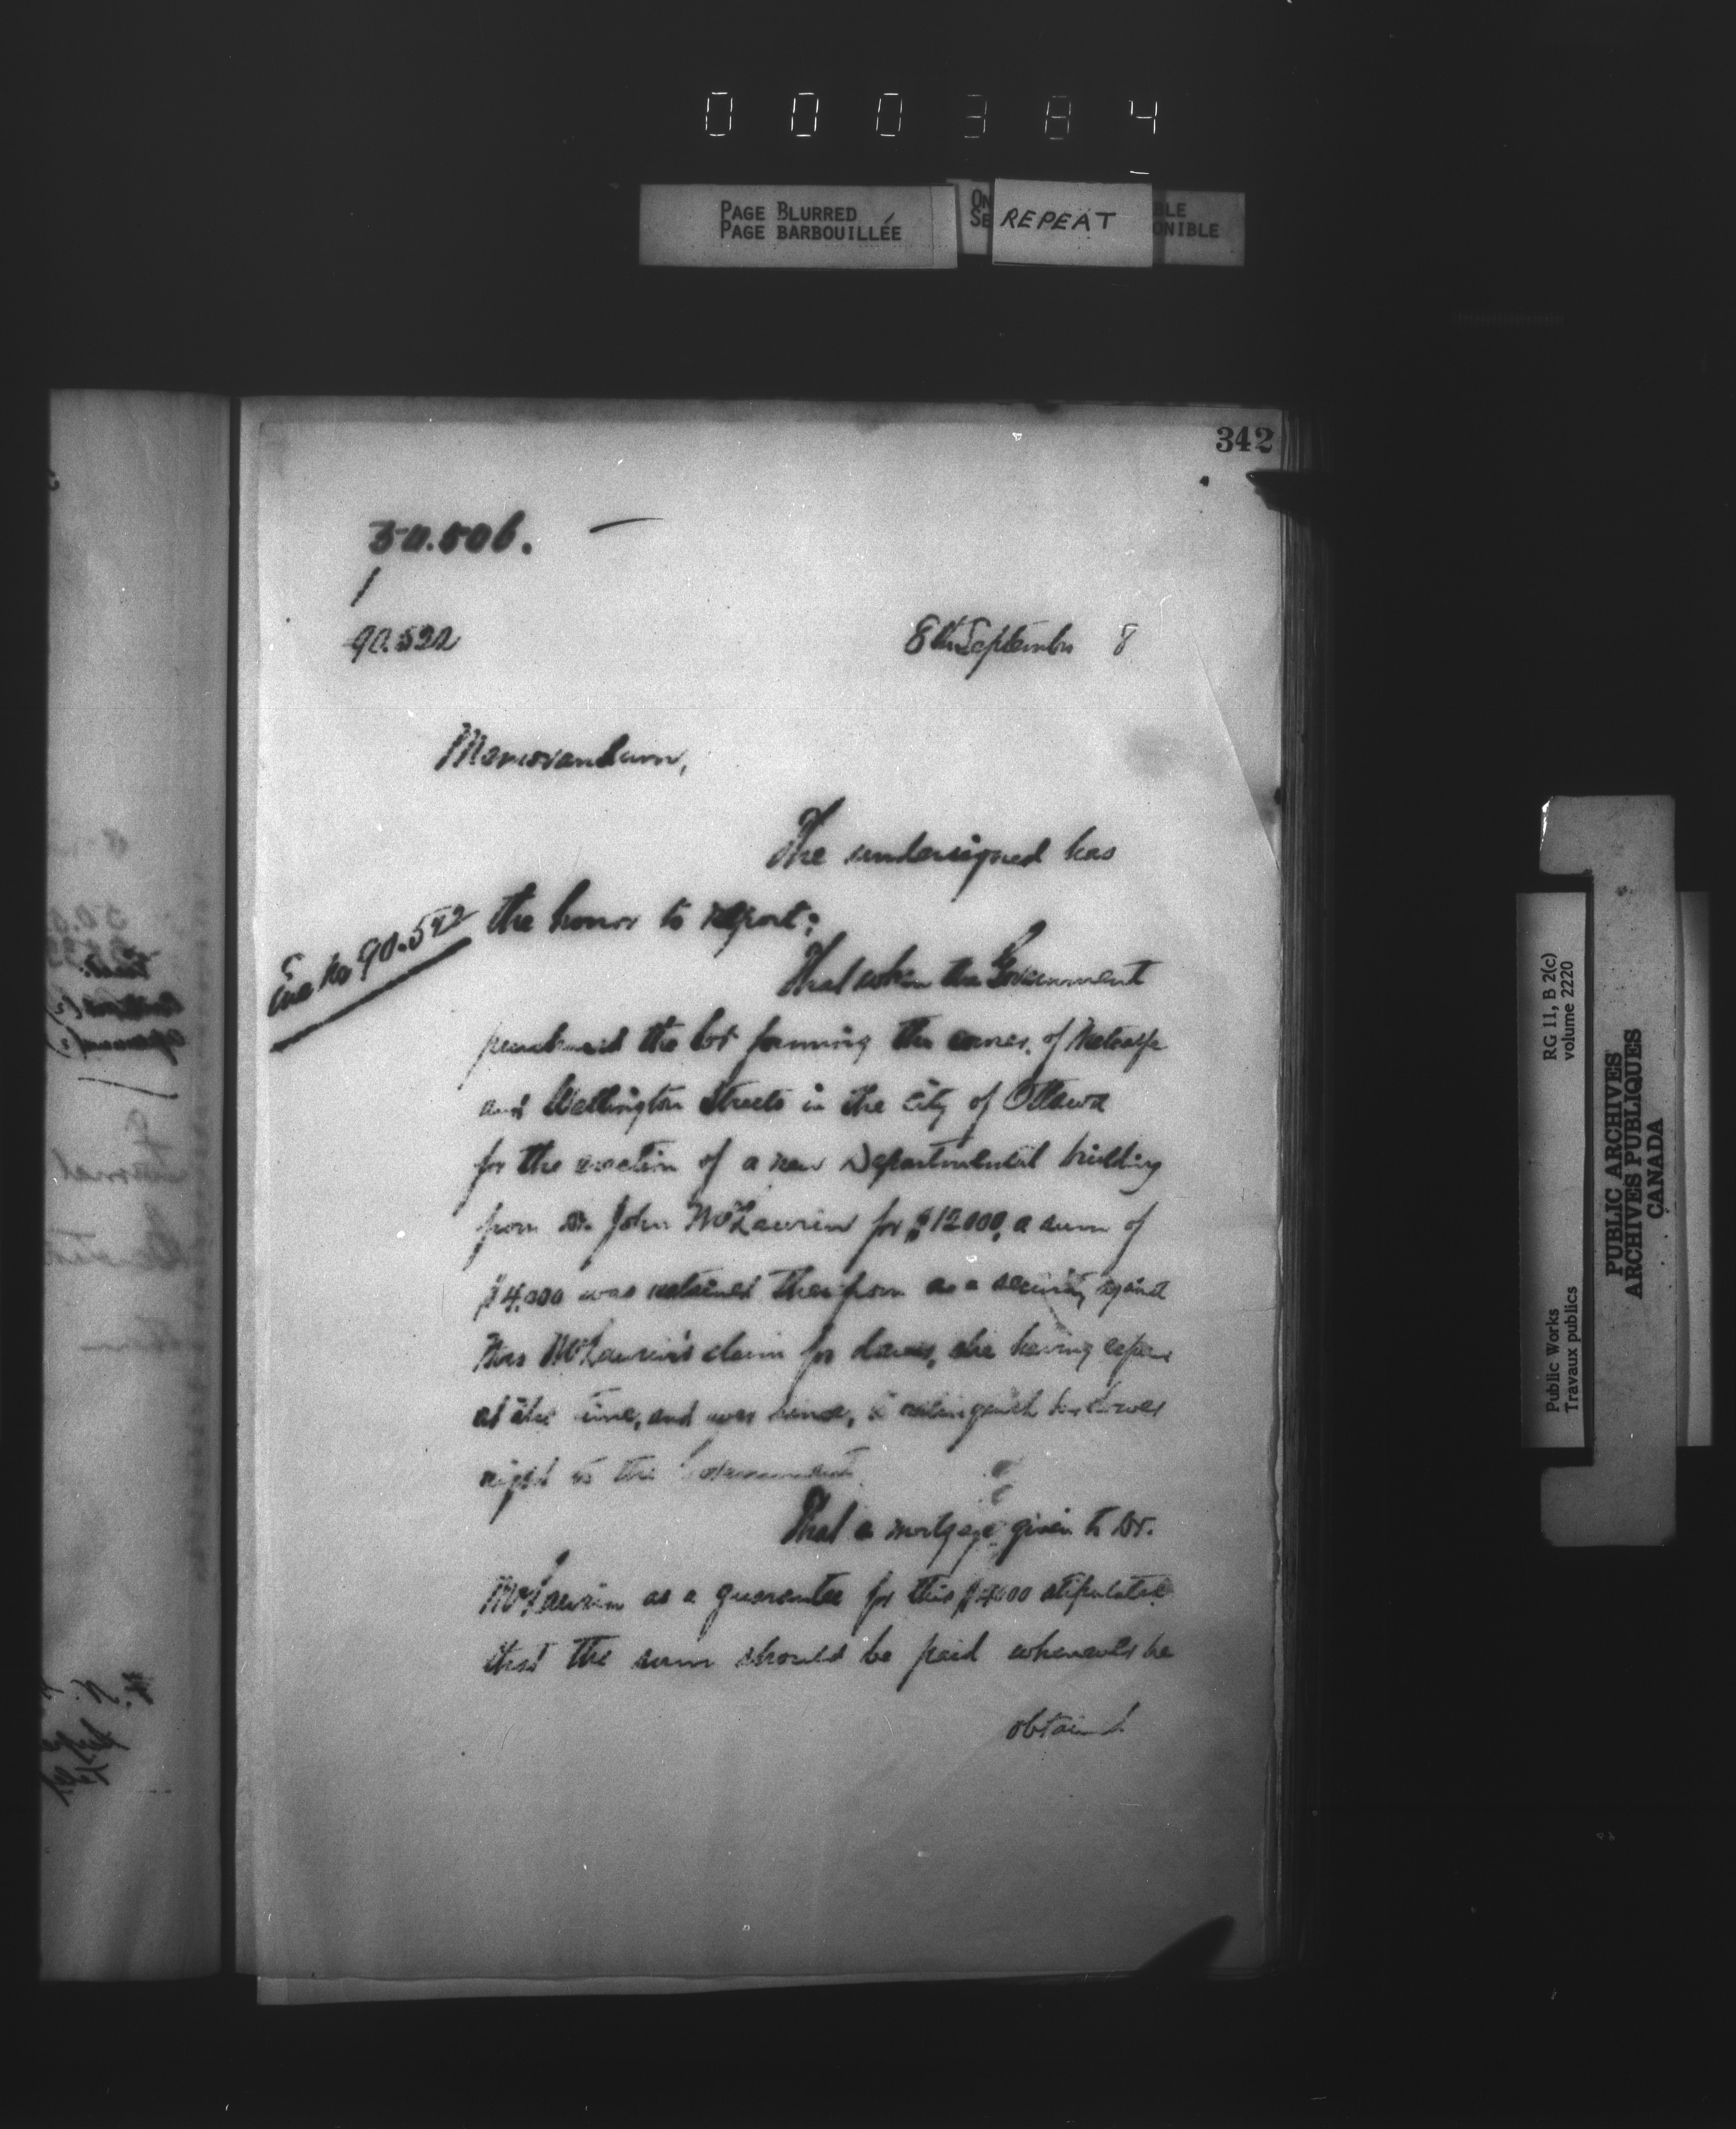 000384
PAGE BLURRED
PAGE BARBOUILLÉE
REPEAT
BLE
ONIBLE
342
50.506.
90.522
8th September 8
Memorandum,
The undersigned has
the honor to report:
That when the Government
purchased the lot forming the corner of Metcalfe
and Wellington Streets in the city of Ottawa
for the erection of a new Departmental building
from Dr. John McLaurin for $12000, a sum of
$4,000 was retained therefrom as a security against
Mrs McLaurin's claim for dower, she having
at the time, and ever since, to relinquish her dower
right to the Government
That a mortgage given to Dr.
McLaurin as a guarantee for this $4000 stipulated
that the sum should be paid when
obtained
RG 11, B 2(c)
volume 2220
Public Works
Travaux publics
PUBLIC ARCHIVES
ARCHIVES PUBLIQUES
CANADA